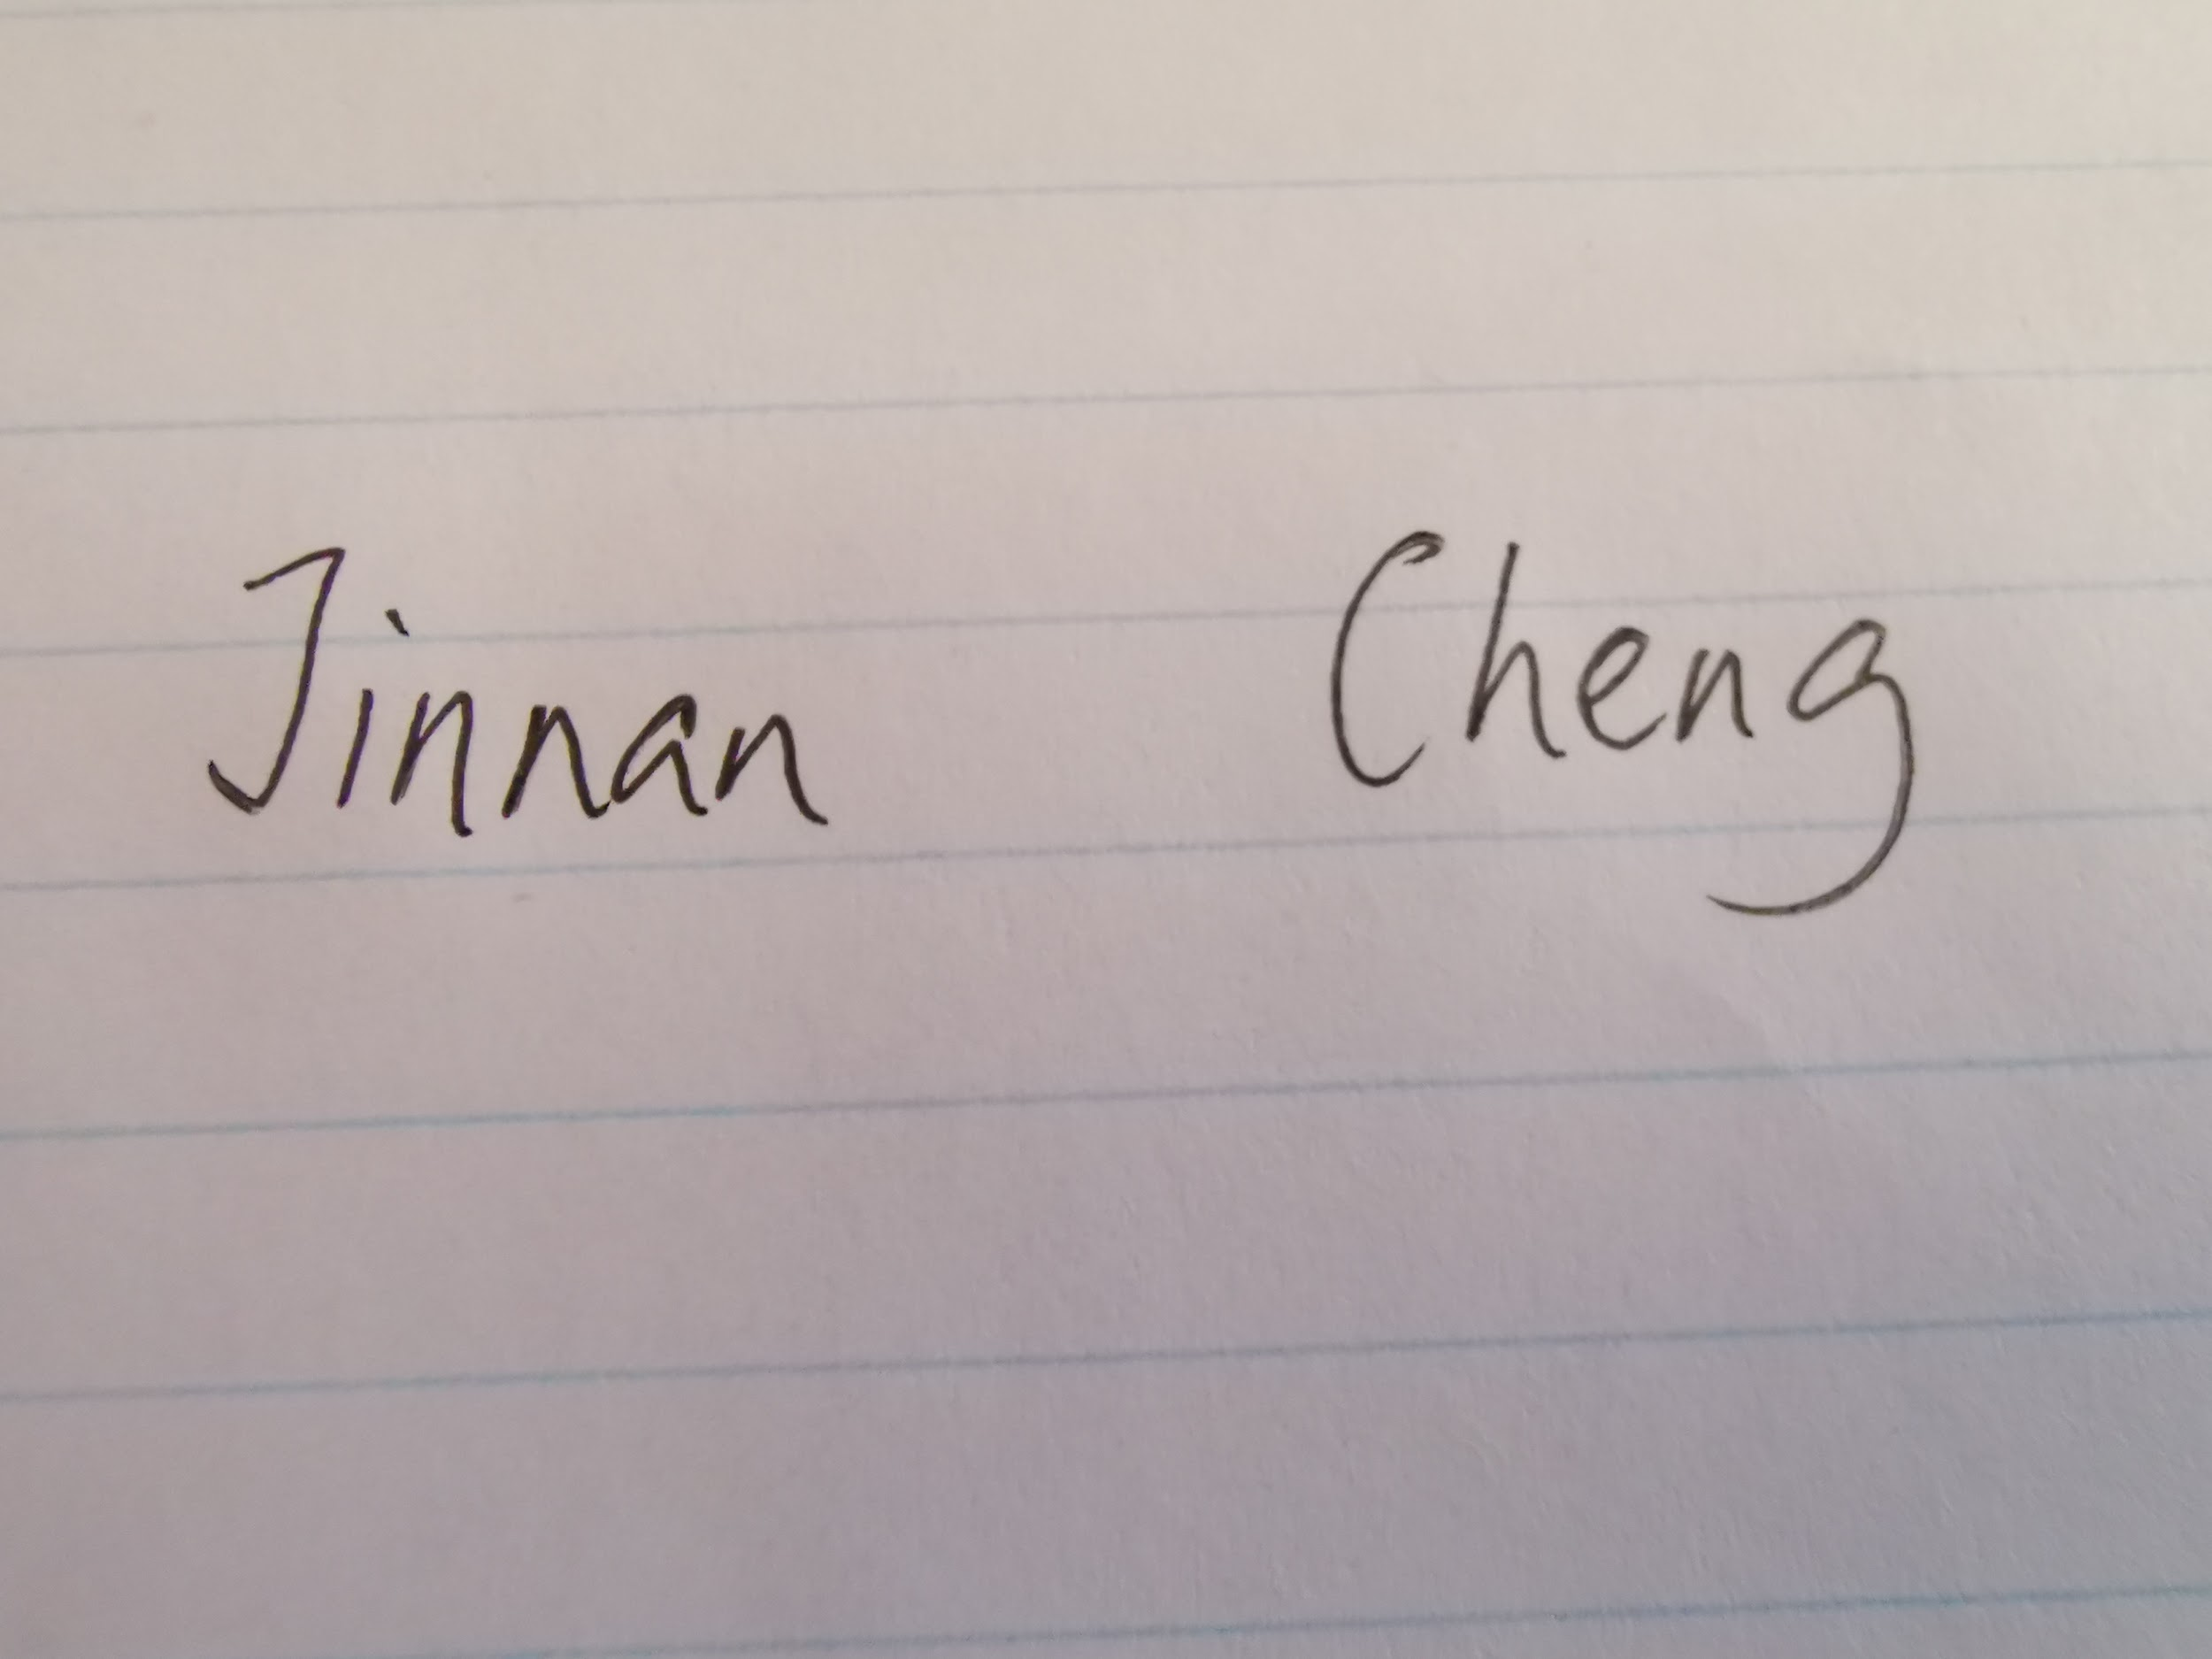 Jinnan Cheng